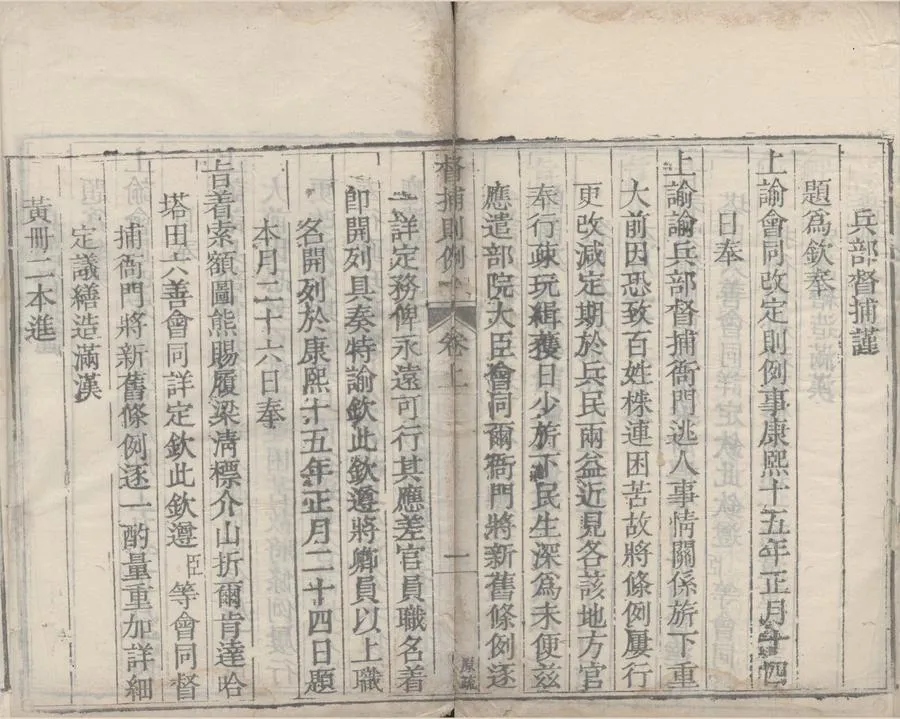 兵部督捕謹
題爲欽奉
上諭會同改定則例事康熙十五年正月十四
日奉
上諭諭兵部督捕衙門逃人事情關係旂下重
大前因恐致百姓株連困苦故將條例屢行
更改減定期於兵民兩益近見各該地方官
奉行疎玩緝獲日少旂下民生深爲未便茲
應遣部院大臣會同爾衙門將新舊條例逐
督捕則例 卷上 一 原疏
一詳定務俾永遠可行其應差官員職名着
卽開列具奏特諭欽此欽遵將卿員以上職
名開列於康熙十五年正月二十四日題
本月二十六日奉
旨着索額圖熊賜履梁清標介山折爾肯達哈
塔田六善會同詳定欽此欽遵臣等會同督
捕衙門將新舊條例逐一酌量重加詳細
定議繕造滿漢
黃冊二本進